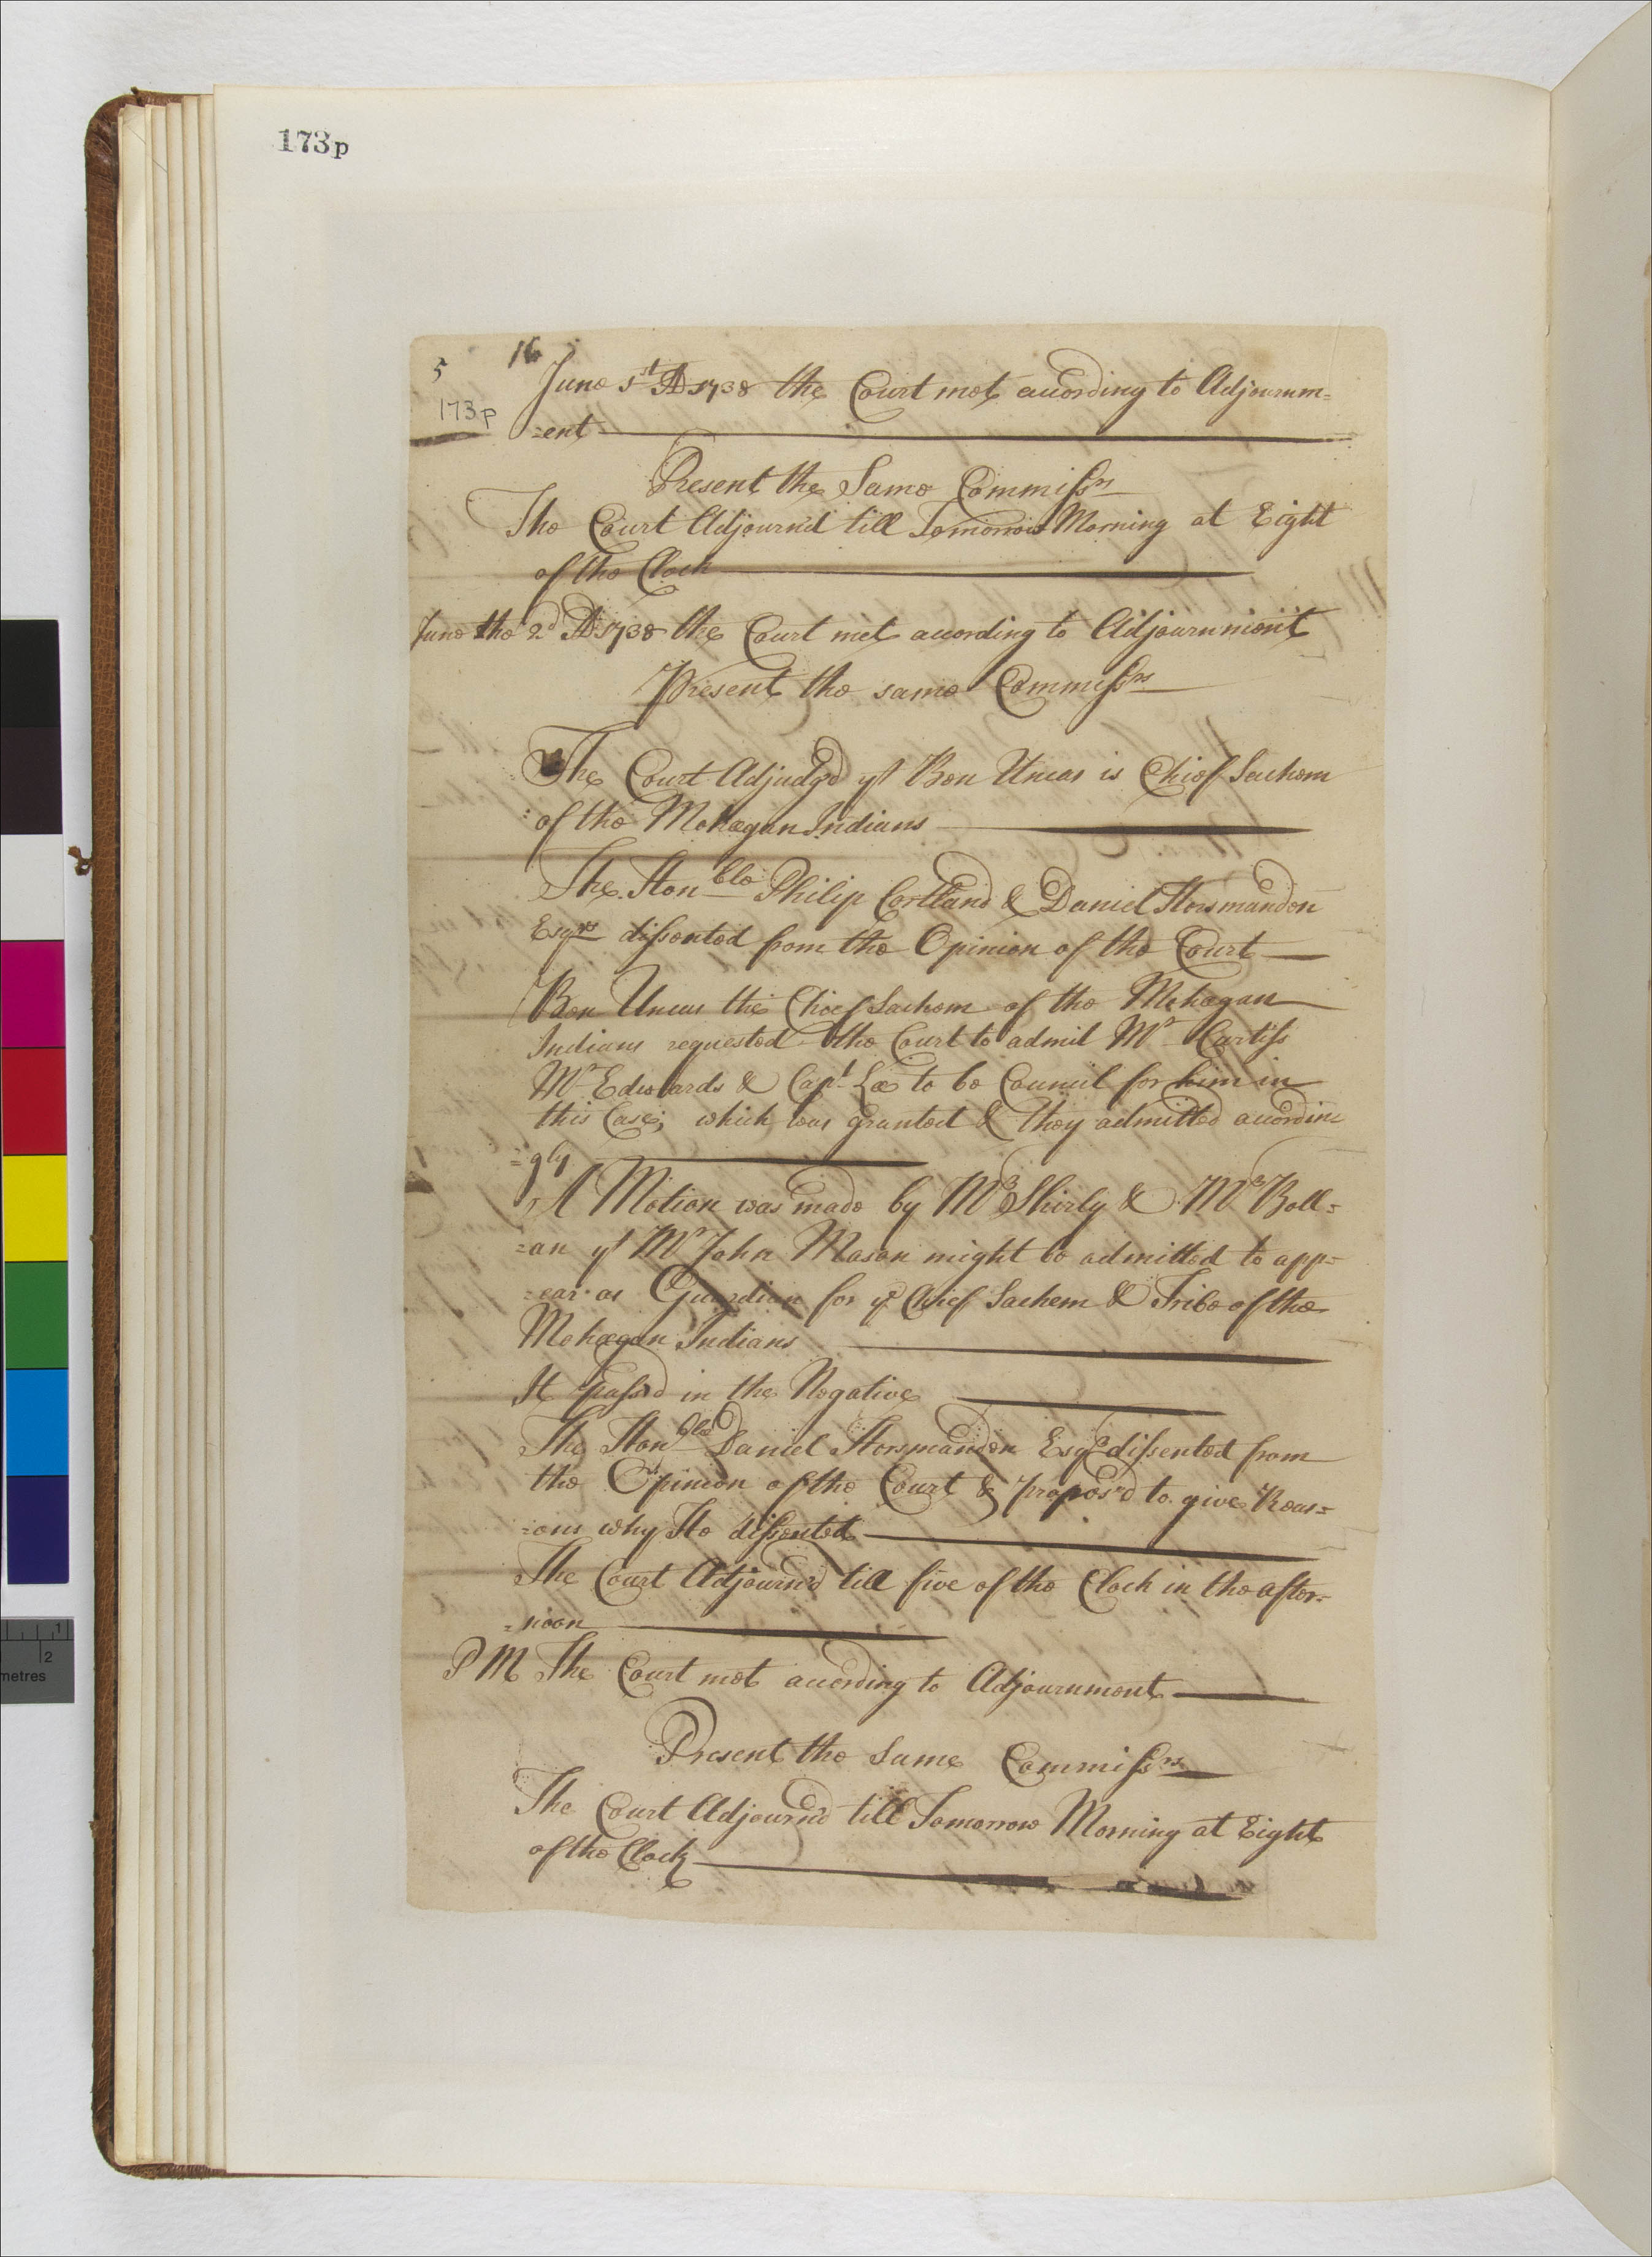 173p
16
5
June 1st AD 1738 the Court met according to Adjournm=
173p
=ent
Present the Same Commissrs
The Court Adjournd till Tomorrow Morning at Eight
of the Clock
June the 2d AD 1738 the Court met according to Adjournment
Present the same Commissrs
The Court Adjudg'd yt Ben Uncas is Chief Sachem
of the Mohegan Indians
The Honble Philip Cortland & Daniel Horsmanden
Esqrs dissented from the Opinion of the Court
Ben Uncas the Chief Sachem of the Mohegan
Indians requested the Court to admit Mr Curtiss
Mr Edwards & Capt Lee to be Council for him in
this Case; which was granted & they admitted accordin
=gly
A Motion was made by Mr Shirly & Mr Boll=
=an yt Mr John Mason might be admitted to app=
=ear as Guardian for ye Chief Sachem & Tribe of the
Mohegan Indians
It pass'd in the Negative
The Honble Daniel Horsmanden Esqr dissented from
the Opinion of the Court & propos'd to give Reas=
=ons why He dissented
The Court Adjourn'd till five of the Clock in the after=
=noon
P M The Court met according to Adjournment
Present the Same Commissrs
The Court Adjourn'd till Tomorrow Morning at Eight
of the Clock
1
2
metres